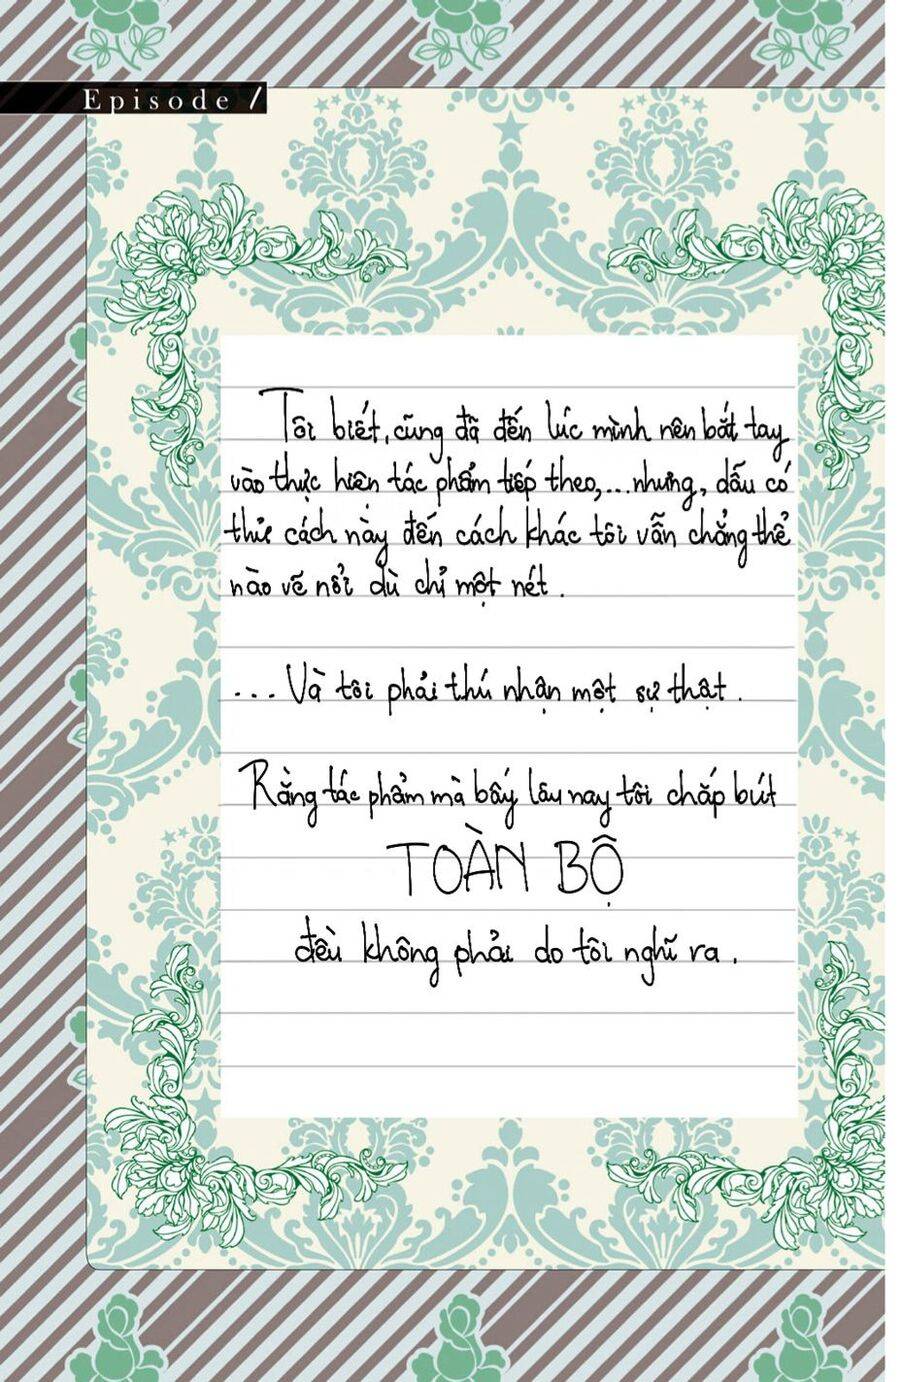 Episode 1
Tôi biết, cũng đã đến lúc mình nên bắt tay
vào thực hiện tác phẩm tiếp theo,...nhưng, dẫu có
thử cách này đến cách khác tôi vẫn chẳng thể
nào vẽ nổi dù chỉ một nét.
...Và tôi phải thú nhận một sự thật.
Rằng tác phẩm mà bấy lâu nay tôi chắp bút
TOÀN BỘ
đều không phải do tôi nghĩ ra.